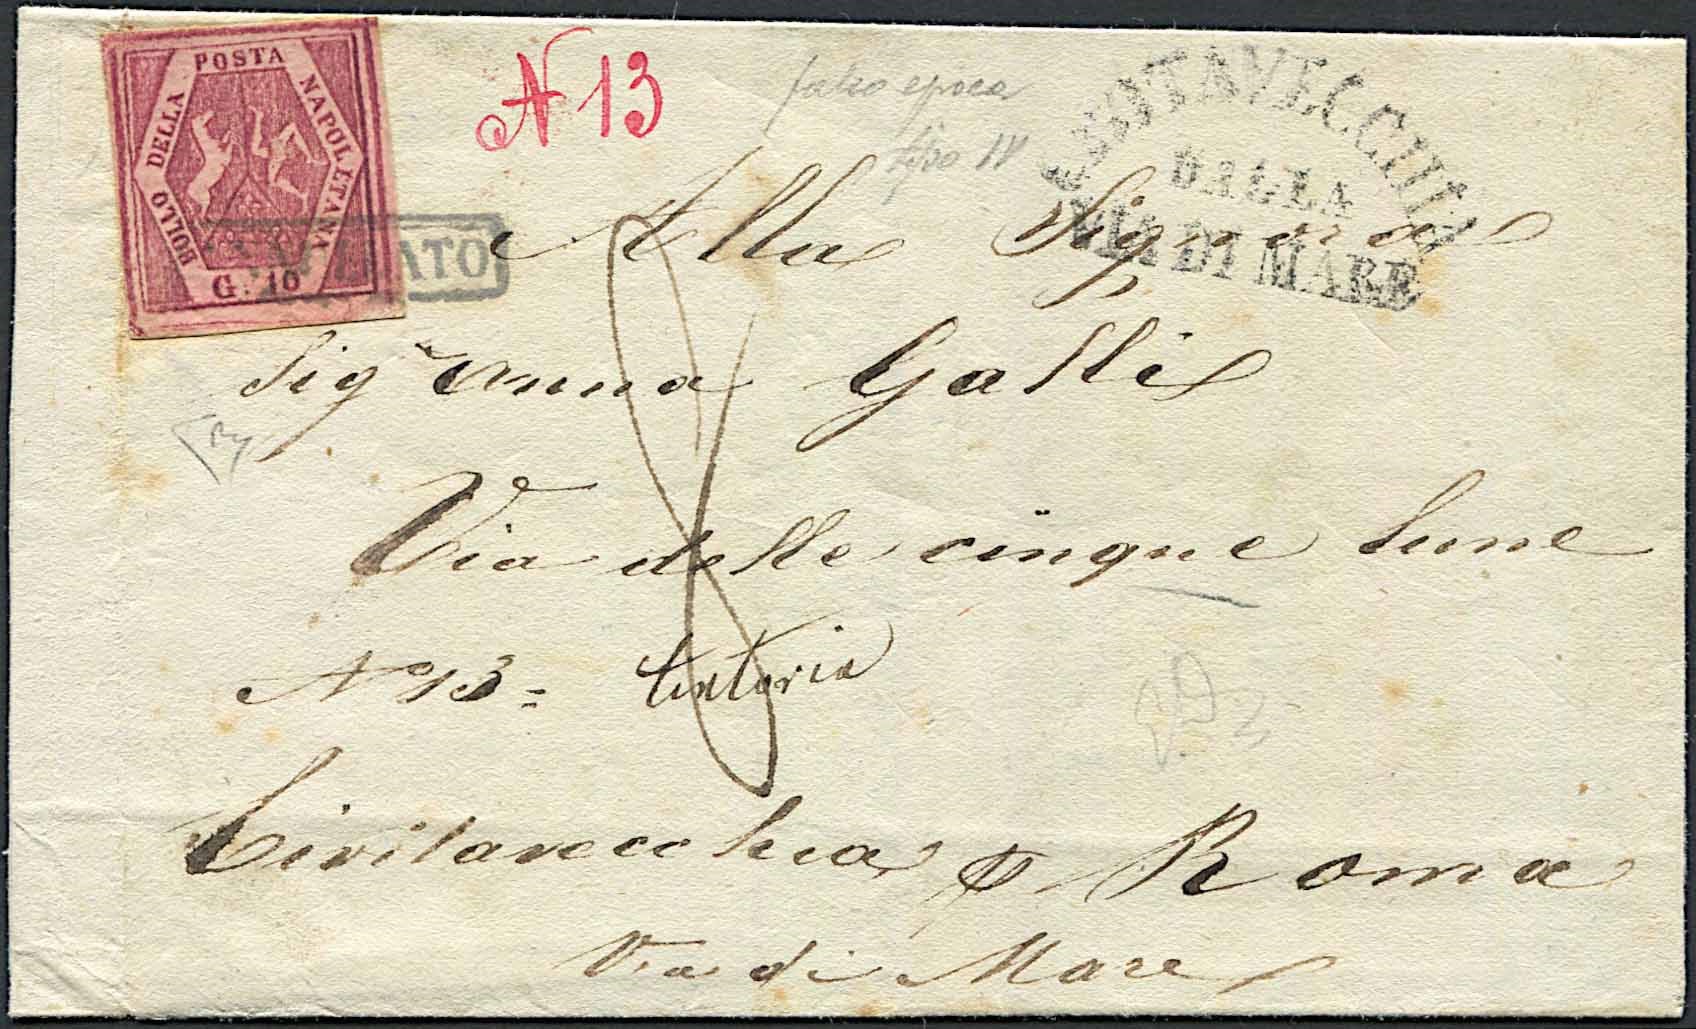 BOLLO DELLA POSTA NAPOLETANA
G. 10
ANNULLATO
N 13
falso epoca
tipo IV
CIVITAVECCHIA
DALLA
VIA DI MARE
8
Alla Signora
Sigra Anna Galli
Via delle cinque lune
N 13 = tintoria
Civitavecchia p Roma
Via di Mare